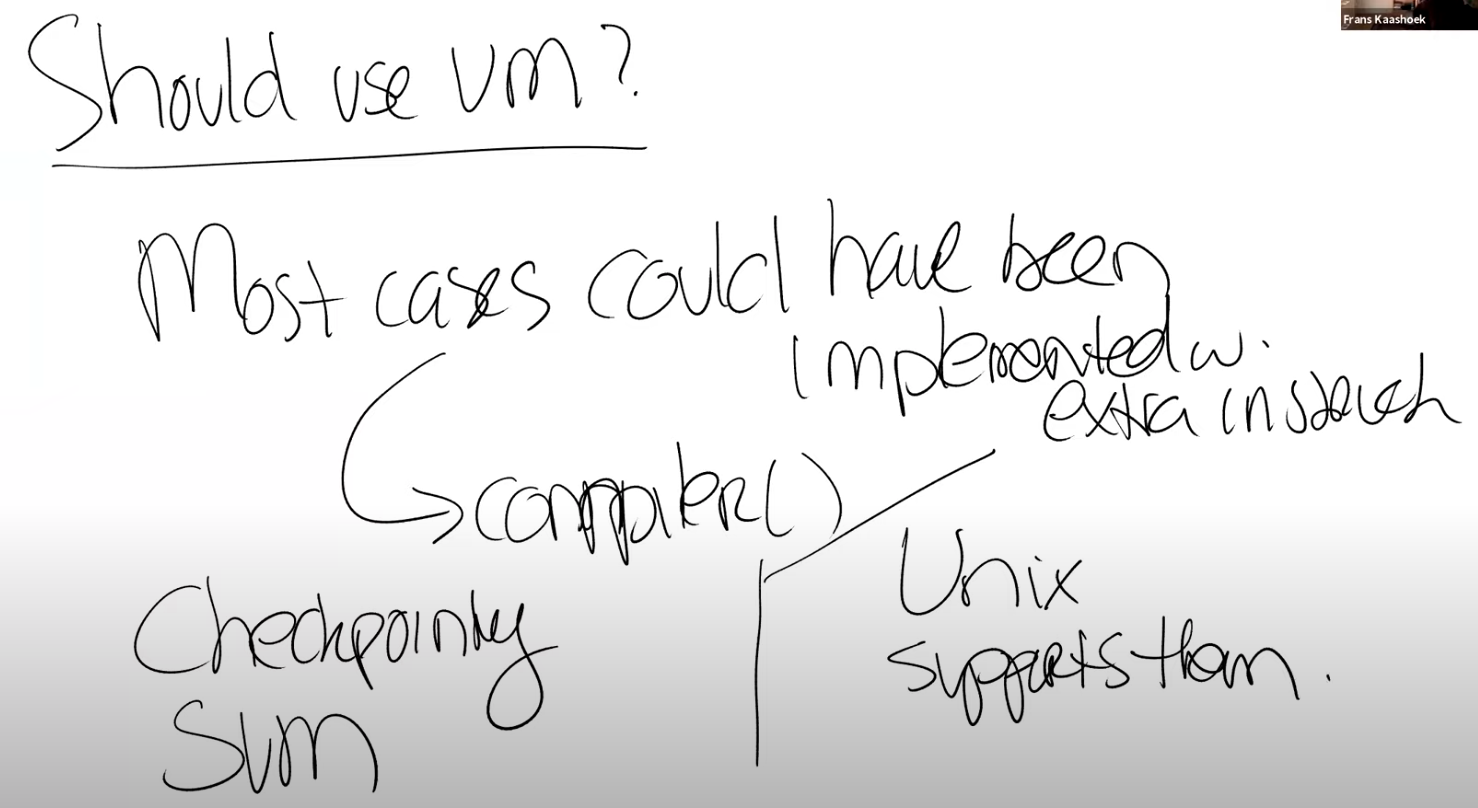 Frans Kaashoek
Should use VM?
Most cases could have been
implemented w.
extra instruct
compiler()
Checkpointing
SVM
Unix
supports them.